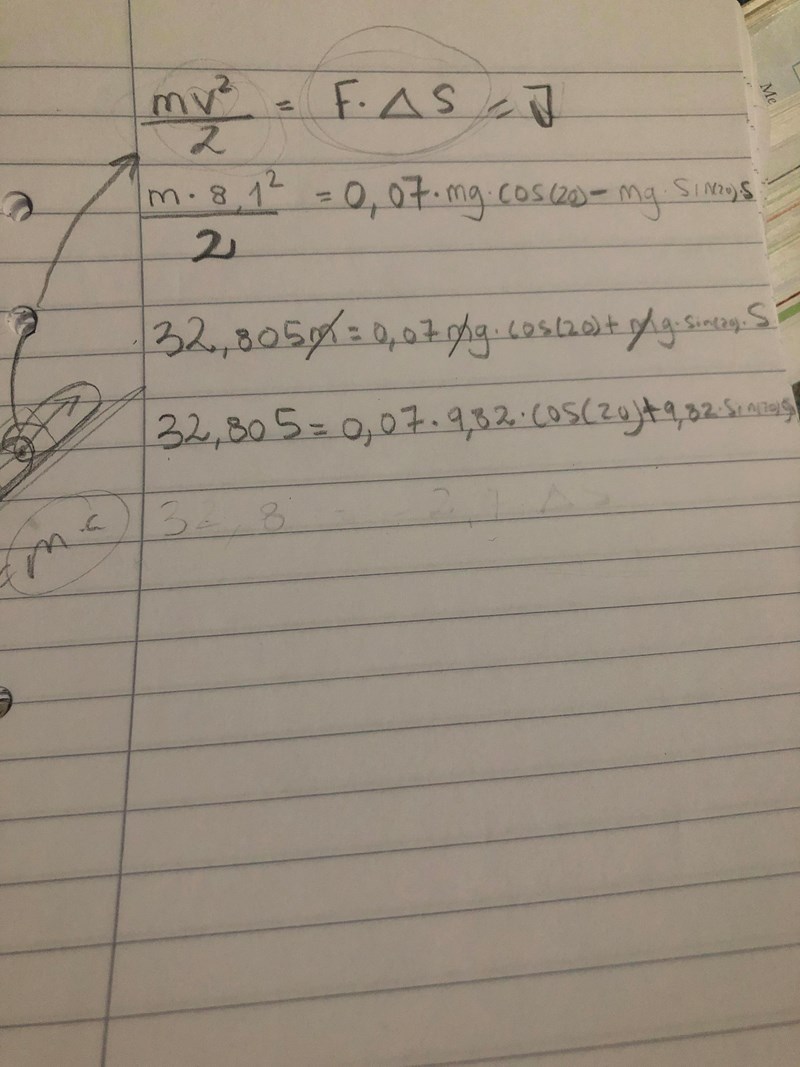 Me
mv²/2 = F · ΔS = J
m · 8,1²/2 = 0,07 · mg · cos(20) − mg · Sin(20) · S
32,805m = 0,07 mg · cos(20) + mg · Sin(20) · S
32,805 = 0,07 · 9,82 · cos(20) + 9,82 · Sin(20) S
32,8 2,7 Δs
m